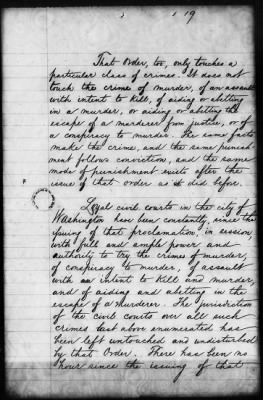 19
That Order, too, only touches a
particular class of crimes. It does not
touch the crime of murder, of an assault
with intent to kill, of aiding or abetting
in a murder, or aiding or abetting the
escape of a murderer from justice, or of
a conspiracy to murder. The same facts
make the crime, and the same punish-
ment follows conviction, and the same
mode of punishment exists after the
issue of that order as it did before.
Loyal civil courts in the city of
Washington have been constantly, since the
issuing of that proclamation, in session,
with full and ample power and
authority to try the crimes of murder,
of conspiracy to murder, of assault
with an intent to kill and murder,
and of aiding and abetting in the
escape of a murderer. The jurisdiction
of the civil courts over all such
crimes last above enumerated has
been left untouched and undisturbed
by that Order. There has been no
hour since the issuing of that